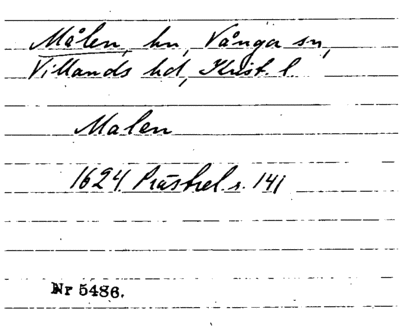 Målen, hn, Vånga sn,
Villands hd, Krist. l
Malen
1624 Prästrel s. 141
Nr 5486.